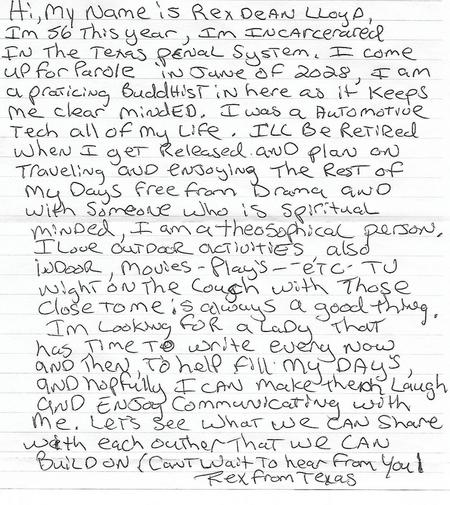 Hi, My Name is Rex Dean Lloyd,
Im 56 This year, Im Incarcerated
In The Texas penal System. I come
up for Parole in June of 2028, I am
a praticing Buddhist in here as it Keeps
me clear minded. I was a Automotive
Tech all of My Life. I'll Be Retired
when I get Released and plan on
Traveling and enjoying The Rest of
My Days free from Drama and
with Someone who is spiritual
minded, I am a theosophical person.
I Love outdoor activities also
indoor, Movies - Play's - etc - TV
night on The Couch with Those
Close to me is always a good thing.
Im Looking for a Lady That
has Time To write every Now
and Then, To help fill My DAYs,
and hopfully I can make them Laugh
and Enjoy Communicating with
Me. Let's See What we can Share
with each outher That we can
Build on (Cant Wait To hear From You!
Rex from Texas